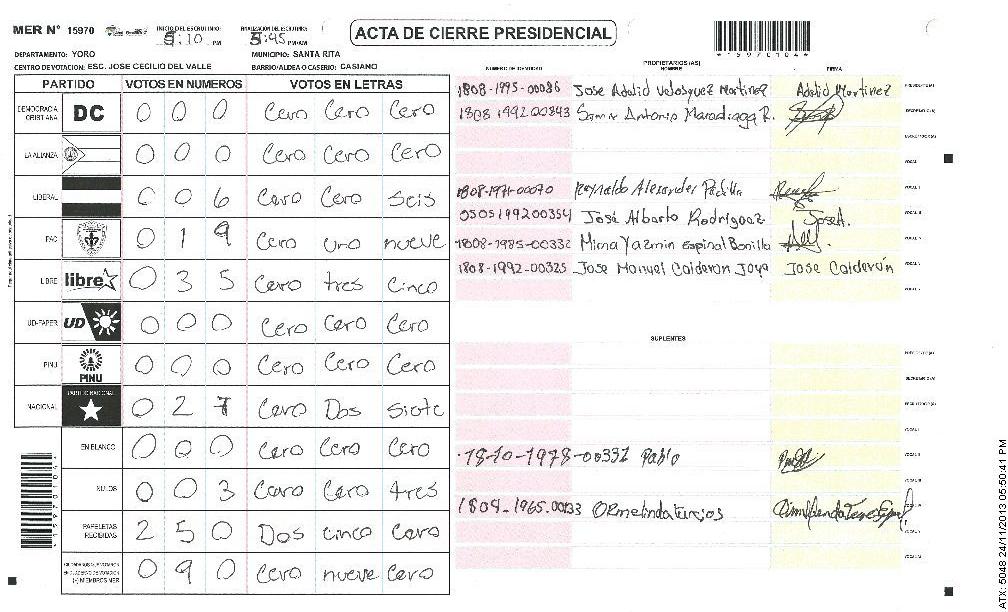 MER N° 15970 INICIO DEL ESCRUTINIO: 5:10 PM FINALIZACIÓN DEL ESCRUTINIO: 5:45 PM/AM
ACTA DE CIERRE PRESIDENCIAL
*15970104*
DEPARTAMENTO: YORO MUNICIPIO: SANTA RITA
CENTRO DE VOTACION: ESC. JOSE CECILIO DEL VALLE BARRIO/ALDEA O CASERIO: CASIANO
PARTIDO VOTOS EN NUMEROS VOTOS EN LETRAS
DEMOCRACIA CRISTIANA DC 0 0 0 Cero Cero Cero
LA ALIANZA 0 0 0 Cero Cero Cero
LIBERAL 0 0 6 Cero Cero Seis
PAC 0 1 9 Cero uno nueve
LIBRE libre 0 3 5 Cero tres Cinco
UD-FAPER UD 0 0 0 Cero Cero Cero
PINU PINU 0 0 0 Cero Cero Cero
NACIONAL PARTIDO NACIONAL 0 2 7 Cero Dos Siete
EN BLANCO 0 0 0 Cero Cero Cero
NULOS 0 0 3 Cero Cero tres
PAPELETAS RECIBIDAS 2 5 0 Dos cinco Cero
(+) MIEMBROS MER 0 9 0 Cero nueve Cero
PROPIETARIOS (AS)
NUMERO DE IDENTIDAD NOMBRE FIRMA
1808-1995-00086 Jose Adalid Velasquez Martinez Adalid Martinez PRESIDENTE (A)
1808 1992-00843 Antonio Maradiaga R. SECRETARIO (A)
ESCRUTADOR (A)
VOCAL I
1808-1971-00070 Reynaldo Alexander Padilla VOCAL II
0505199200354 José Alberto Rodriguez José A. VOCAL III
1808-1985-00332 Mirna Yazmin Espinal Bonilla VOCAL IV
1808-1992-00325 Jose Manuel Calderon Joya Jose Calderón VOCAL V
SUPLENTES
PRESIDENTE (A)
SECRETARIO (A)
ESCRUTADOR (A)
-00331 Pablo
1804-1965-00133 Ormelinda Turcios
ATX: 5048 24/11/2013 05:50:41 PM